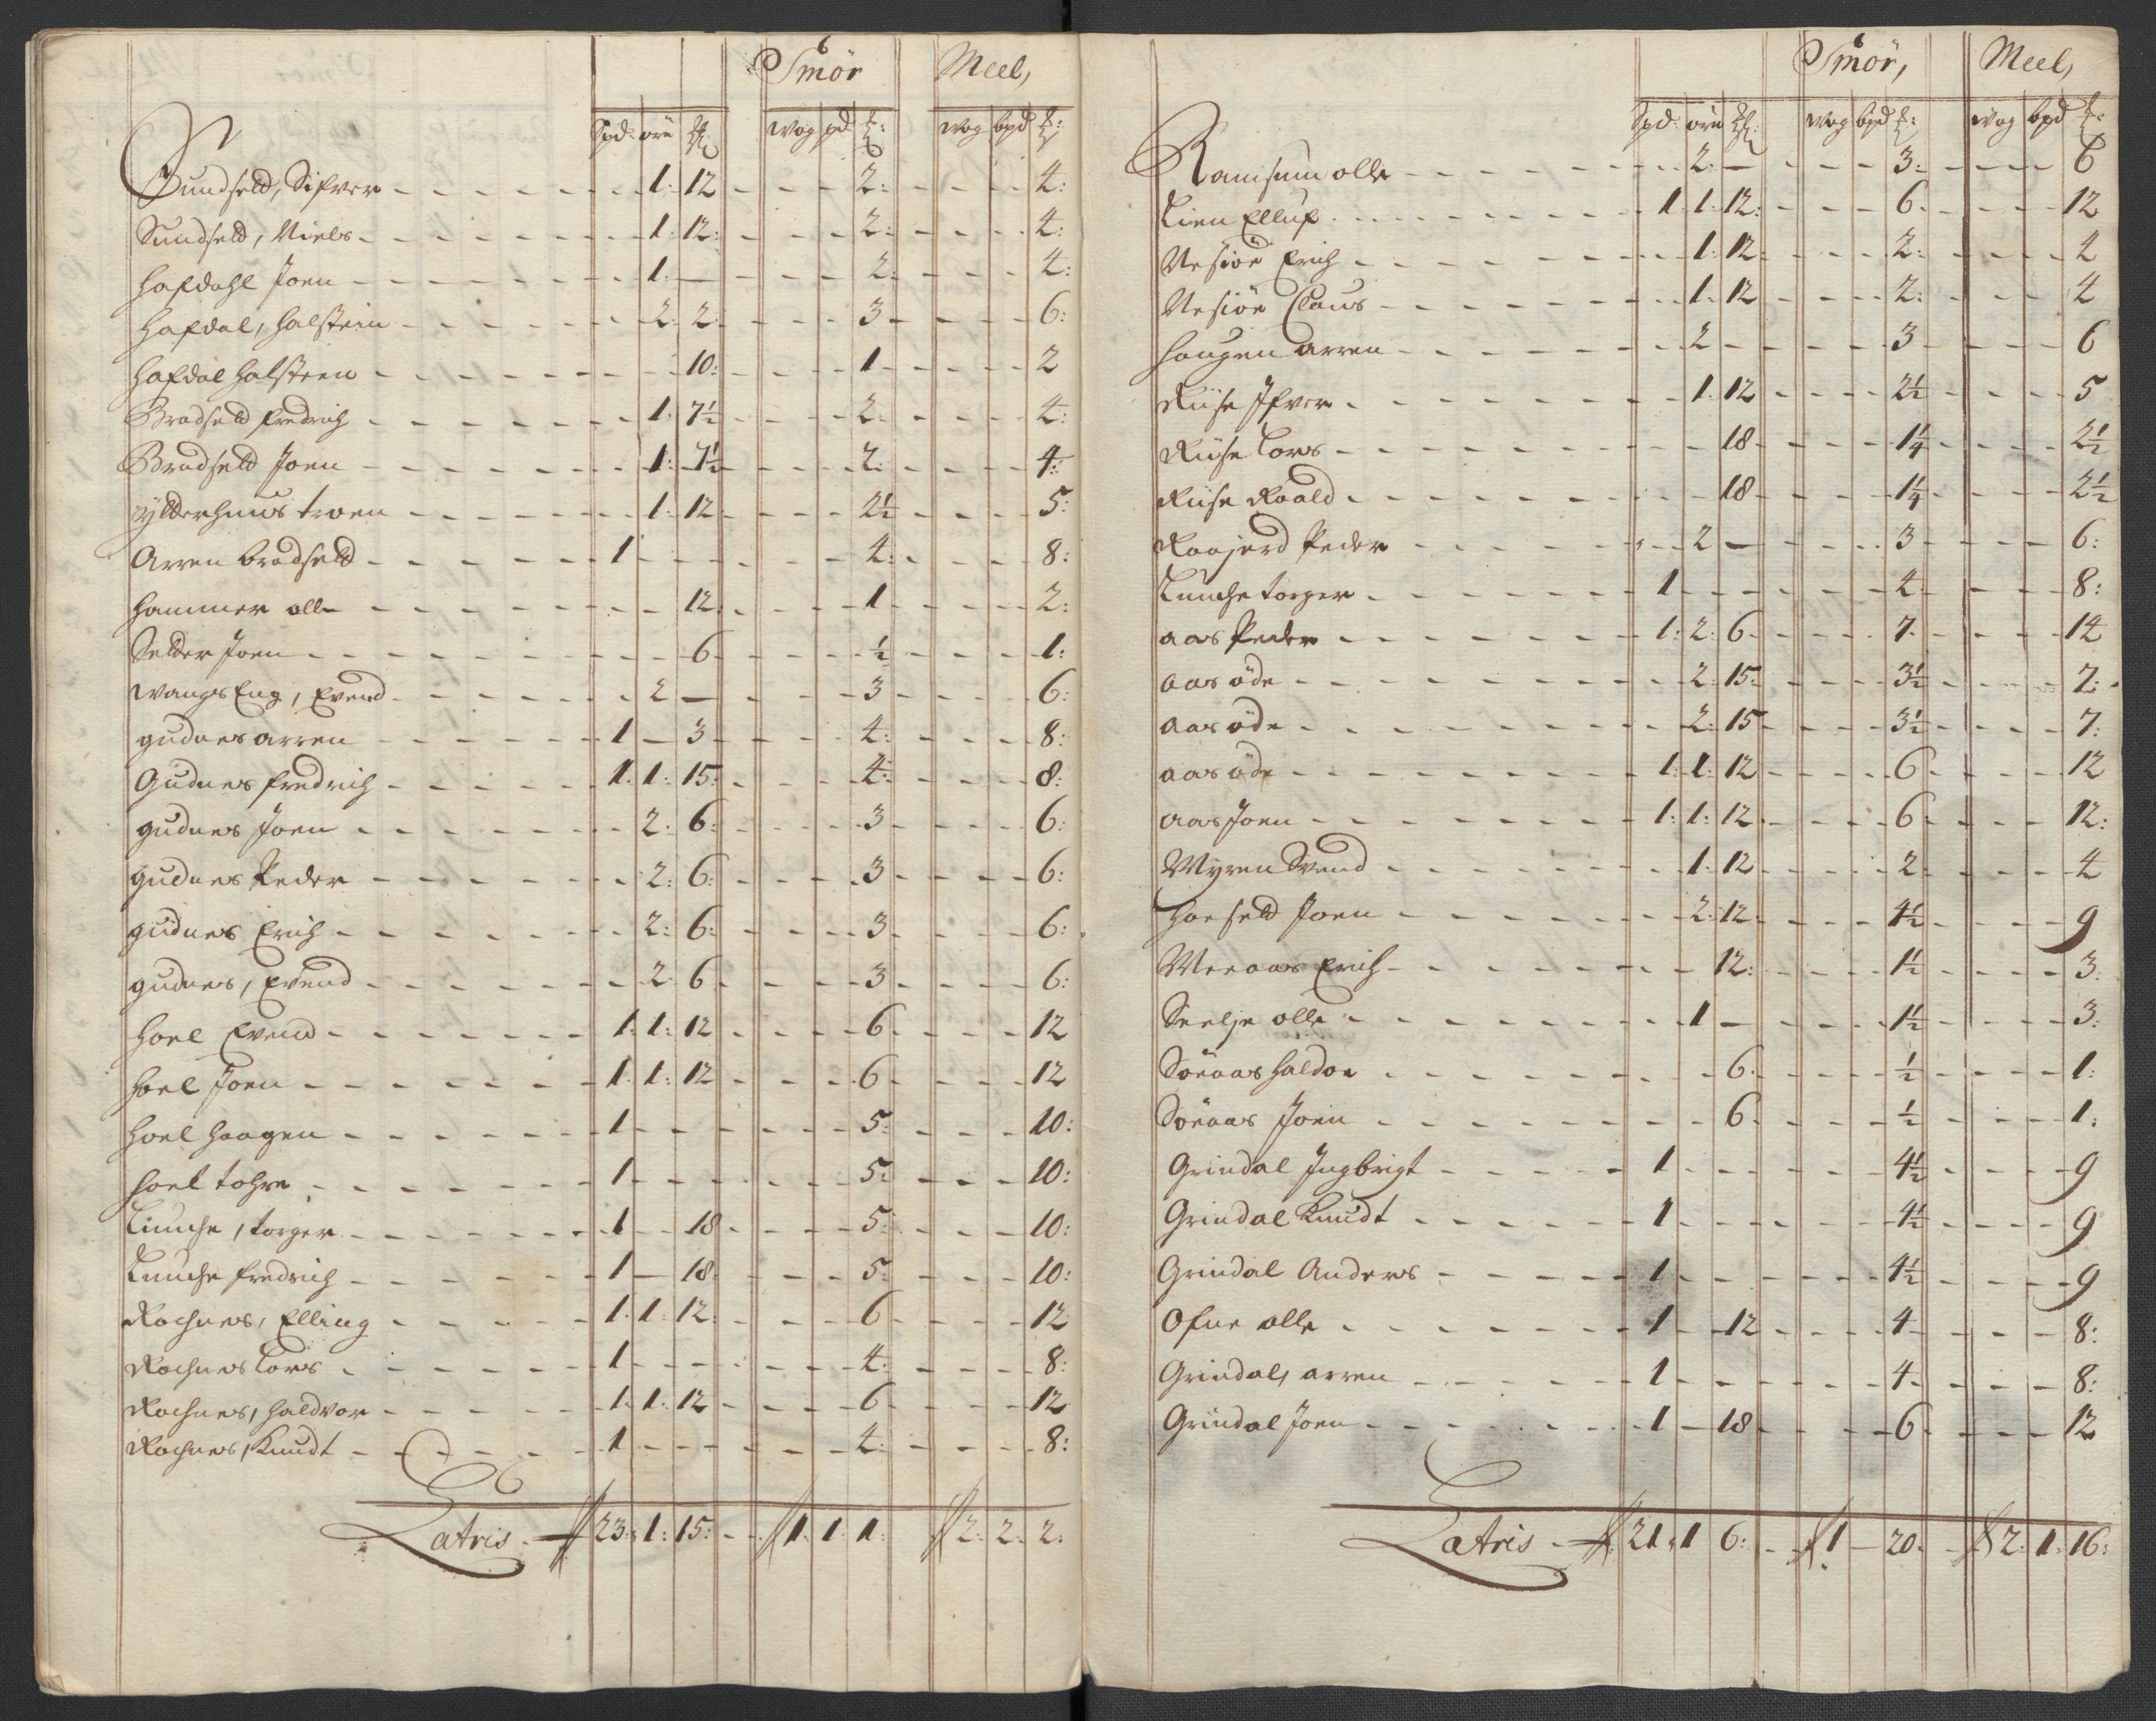 Smör Meel,
Spd: öre ꝶ wog pd ℔: wog bpd ℔:
Sundseld, Sifver 1: 12 2: 4:
Sundseld, Niels 1: 12: 2: 4:
Hafdahl Joen 1: 2: 4:
Hafdal, Halstein 2: 2: 3 6:
Hafdal Halsteen 10: 1 2
Bradseld fredrich 1: 7½ 2: 4:
Bradseld Joen 1: 7½ 2: 4:
Gylderhuus troen 1: 12 2½ 5:
Arren bradseld 1 4: 8:
Hammer olle 12: 1 2:
Selder Joen 6 ½ 1:
Wangs Eng, Evend 2 3 6:
gudnes arren 1 3 4: 8:
Gudnes fredrich 1: 1: 15: 4: 8:
gudnes Joen 2: 6: 3 6:
gudnes Peder 2: 6: 3 6:
gudnes Erich 2: 6: 3 6:
gudnes, Evend 2: 6 3 6:
Hoel Evend 1: 1: 12 6 12
Hoel Joen 1: 1: 12 6 12
Hoel Haagen 1 5: 10:
Hoel tohre 1 5: 10:
Lunche, torger 1 18 5: 10:
Lunche fredrich 1 18 5: 10:
Rochnes, Elling 1: 1: 12: 6 12
Rochnes Lars 1 4: 8:
Rochnes, Haldvor 1: 1: 12 6 12
Rochnes, Knudt 1 4: 8:
Latris 23: 1: 15: 1: 1: 1: 2: 2: 2:
Smör, Meel,
Spd: öre ꝶ: wog bpd ℔: wog bpd ℔:
Ramsum olle 2: 3: 6
Lien Elluf 1 1: 12: 6 12
Nesiöe Erich 1: 12: 2: 4
Nesiöe Claus 1: 12 2: 4
Haugen arren 2 3 6
Riise Ifver 1: 12 2½ 5
Riise Lars 18 1¼ 2½
Riise Roald 18 1¼ 2½
Raajerd Peder 2 3 6:
Lunche torger 1 4 8:
aas Peder 1: 2: 6 7 14
aas øde 2: 15: 3½ 7:
aas øde 2: 15 3½ 7:
aas øde 1: 1: 12 6 12
aas Joen 1: 1: 12 6 12:
Myren Svend 1: 12 2 4
Hoeseld Joen 2: 12 4½ 9
Meeaas Erich 12: 1½ 3:
Seelje olle 1 1½ 3:
Söeaas Haldor 6 ½ 1:
Söeaas Joen 6 ½ 1:
Grindal Ingbrigt 1 4½ 9
Grindal Knudt 1 4½ 9
Grindal Anders 1 4½ 9
Ofne olle 1 12 4 8:
Grindal, arren 1 4 8:
Grindal Joen 1 18 6 12
Latris 21: 1 6: 1 20 2: 1: 16: